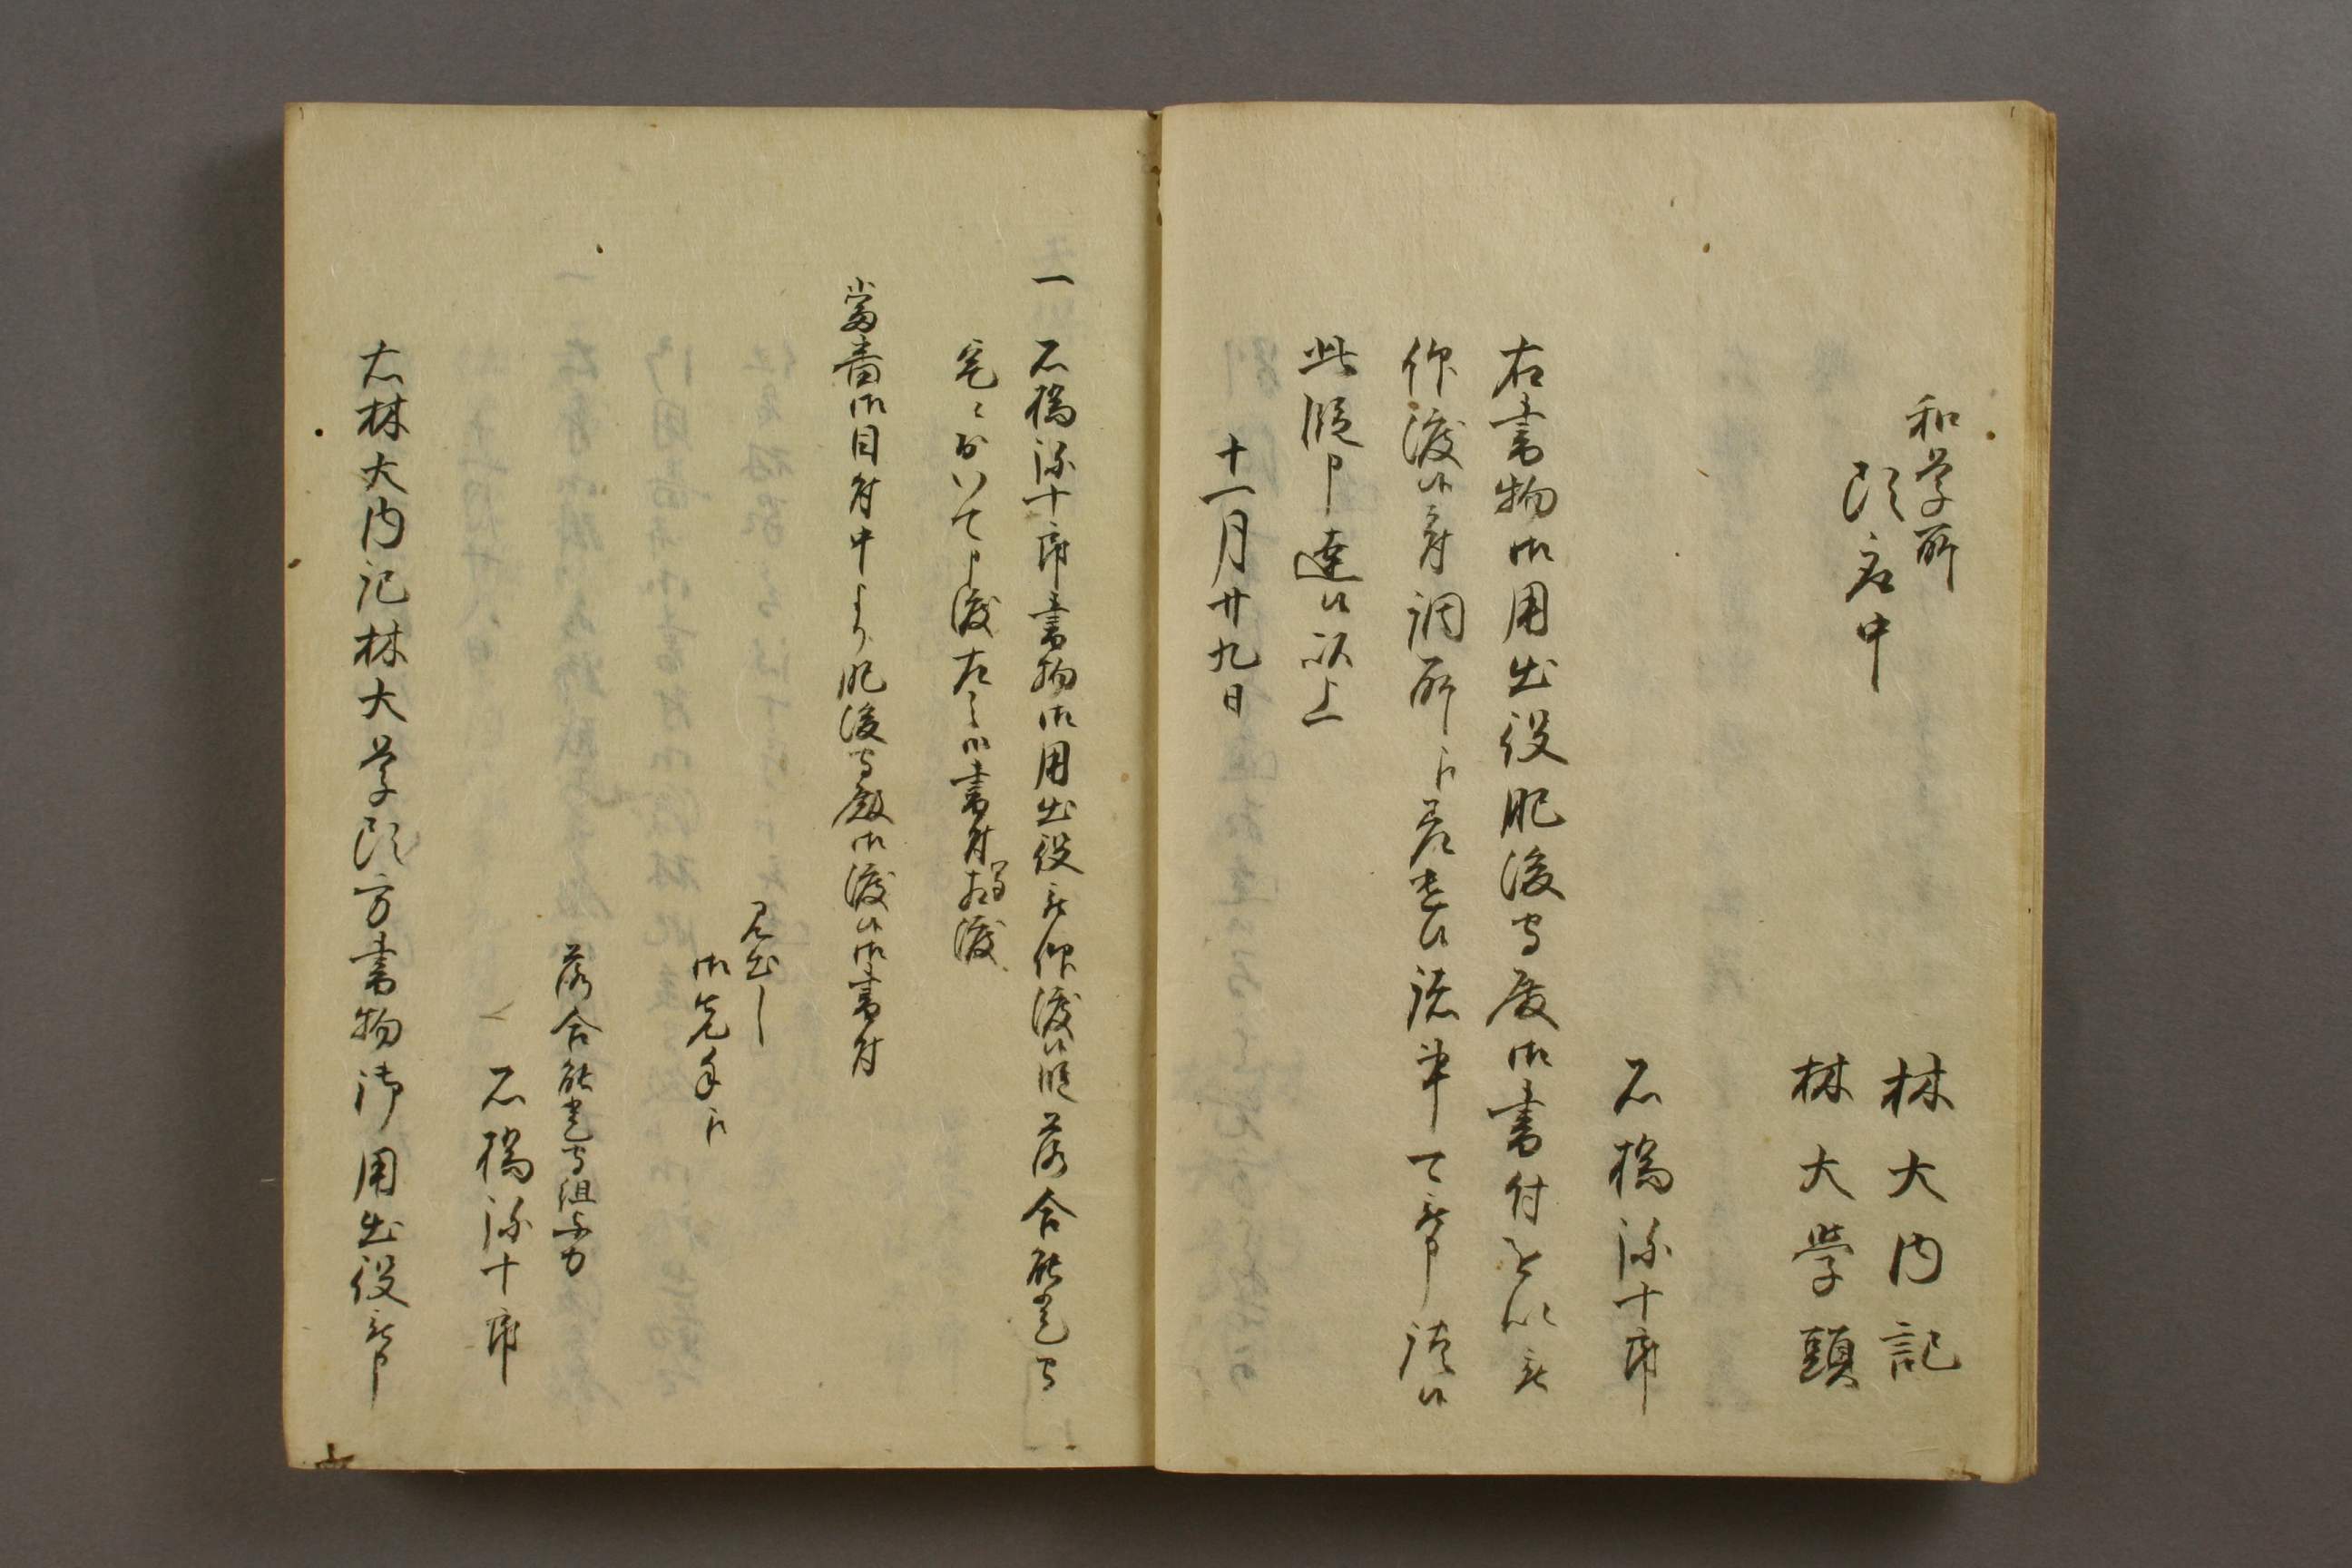 和学所
頭衆中
林大内記
林大学頭
石橋弥十郎
右書物御用出役肥後守殿御書付を以被
仰渡候付調所江差出候諸事可被申談候
此段申達候以上
十一月廿九日
一 石橋弥十郎書物御用出役被仰渡候段落合能登守
宅ニおいて申渡左之御書付写相渡
当番御目付中より肥後守殿御渡候御書付
見出し
御先手江
落合能登守組与力
石橋弥十郎
右林大内記林大学頭方書物御用出役被申